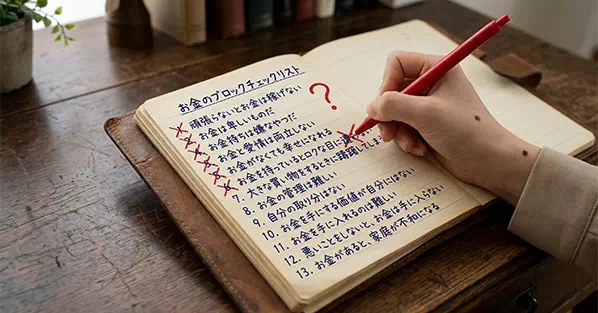 お金のブロックチェックリスト
?
頑張らないとお金は稼げない
お金は卑しいものだ
お金持ちは嫌なやつだ
お金と愛情は両立しない
お金がなくても幸せになれる
お金を持っているとロクな目に
7. 大きな買い物をするときに躊躇してしま
8. お金の管理は難しい
9. 自分の取り分はない
10. お金を手にする価値が自分にはない
11. お金を手に入れるのは難しい
12. 悪いことをしないと、お金は手に入らない
13. お金があると、家庭が不和になる